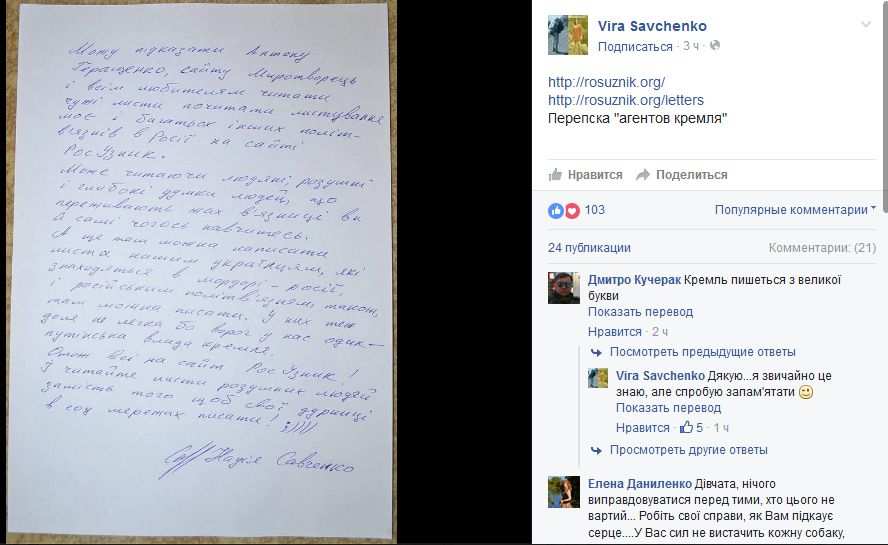 Можу підказати Антону
Геращенко, сайту Миротворець
і всім любителям читати
чужі листи почитати листування
моє і багатьох інших політ-
в'язнів в Росії на сайті
РосУзник.
Може читаючи людяні, розумні
і глибокі думки людей, що
переживають жах в'язниці ви
й самі чогось навчитесь.
А ще там можна написати
листа нашим українцям, які
знаходяться в мордорі - росії,
і російським політв'язням, також,
там можна писати. У них теж
доля не легка бо ворог у нас один -
путінська влада кремля.
Отож всі на сайт РосУзник!
Й читайте листи розумних людей
замість того щоб свої дурниці
в соц мережах писати! :)))))
Надія Савченко
Vira Savchenko
Подписаться · 3 ч ·
http://rosuznik.org/
http://rosuznik.org/letters
Перепска "агентов кремля"
Нравится Поделиться
103 Популярные комментарии
24 публикации Комментарии: (21)
Дмитро Кучерак Кремль пишеться з великої
букви
Показать перевод
Нравится · 2 ч
Посмотреть предыдущие ответы
Vira Savchenko Дякую...я звичайно це
знаю, але спробую запам'ятати
Показать перевод
Нравится · 5 · 1 ч
Просмотреть другие ответы
Елена Даниленко Дівчата, нічого
виправдовуватися перед тими, хто цього не
вартий... Робіть свої справи, як Вам підкаує
серце....У Вас сил не вистачить кожну собаку,